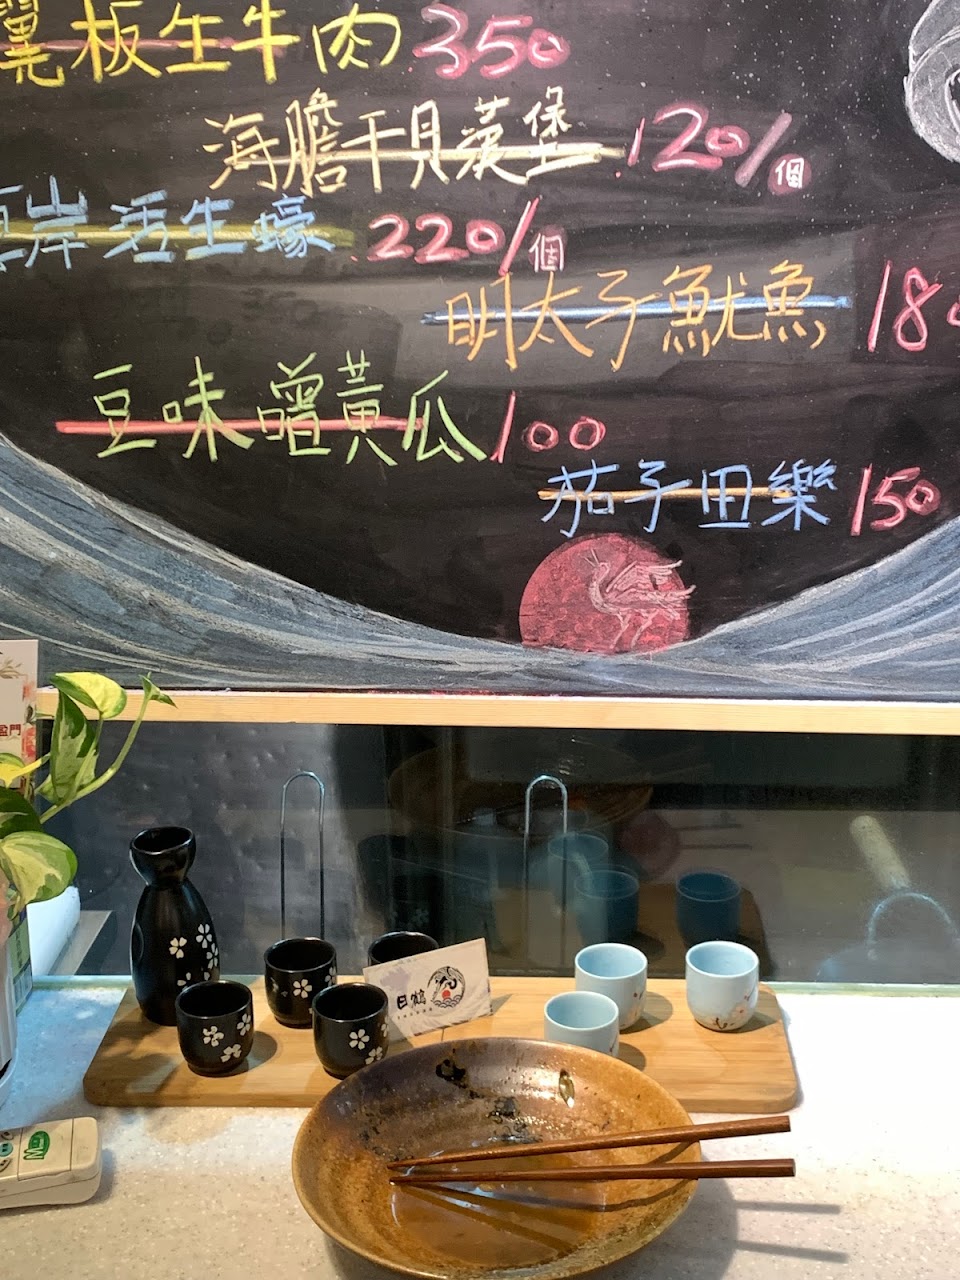 翼板生牛肉 350
海膽干貝漢堡 120/個
岸活生蠔 220/個
明太子魷魚 180
豆味噌黃瓜 100
茄子田樂 150
盈門
日鶴